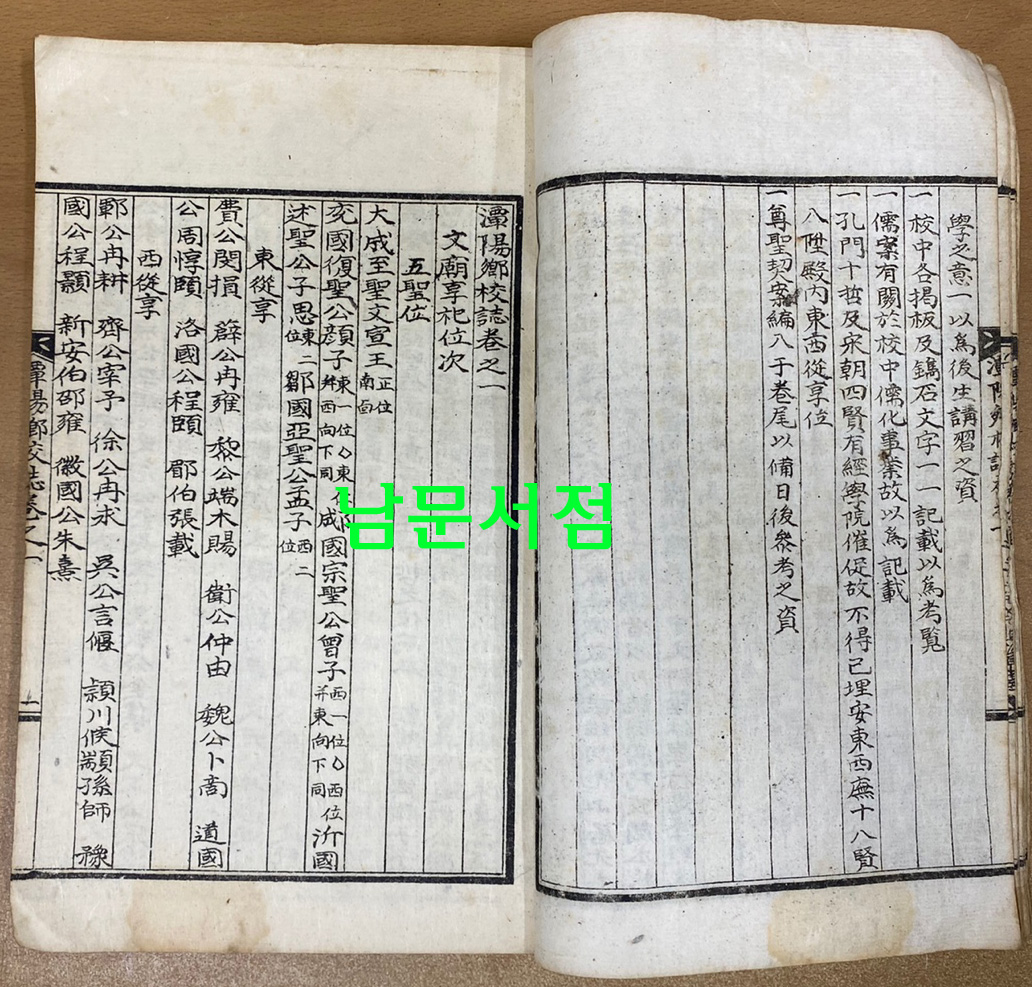 學之意一以爲後生講習之資
一 校中各揭板及鐫石文字一一記載以爲考覧
一 儒案有關於校中儒化事業故以爲記載
一 孔門十哲及宋朝四賢有經學院催促故不得已埋安東西廡十八賢
入陞殿內東西從享位
一 尊聖契案編入于卷尾以備日後參考之資
潭陽鄕校誌卷之一
文廟享祀位次
五聖位
大成至聖文宣王 正位南面
兗國復聖公顔子 東一位 東位并西向下同 郕國宗聖公曾子 西一位 西位并東向下同 沂國
述聖公子思 東二位 鄒國亞聖公孟子 西二位
東從享
費公閔損 薛公冉雍 黎公端木賜 衛公仲由 魏公卜商 道國
公周惇頤 洛國公程頤 郿伯張載
西從享
鄆公冉耕 齊公宰予 徐公冉求 吳公言偃 潁川侯顓孫師 豫
國公程顥 新安伯邵雍 徽國公朱熹
潭陽鄕校誌卷之一
남문서점